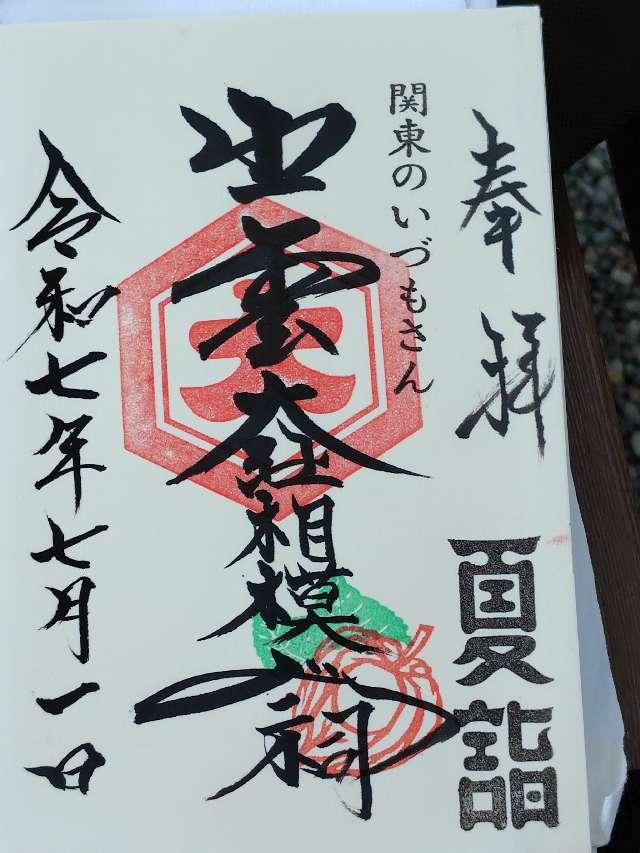 奉拝
夏詣
関東のいづもさん
大
出雲大社相模分祠
令和七年七月一日